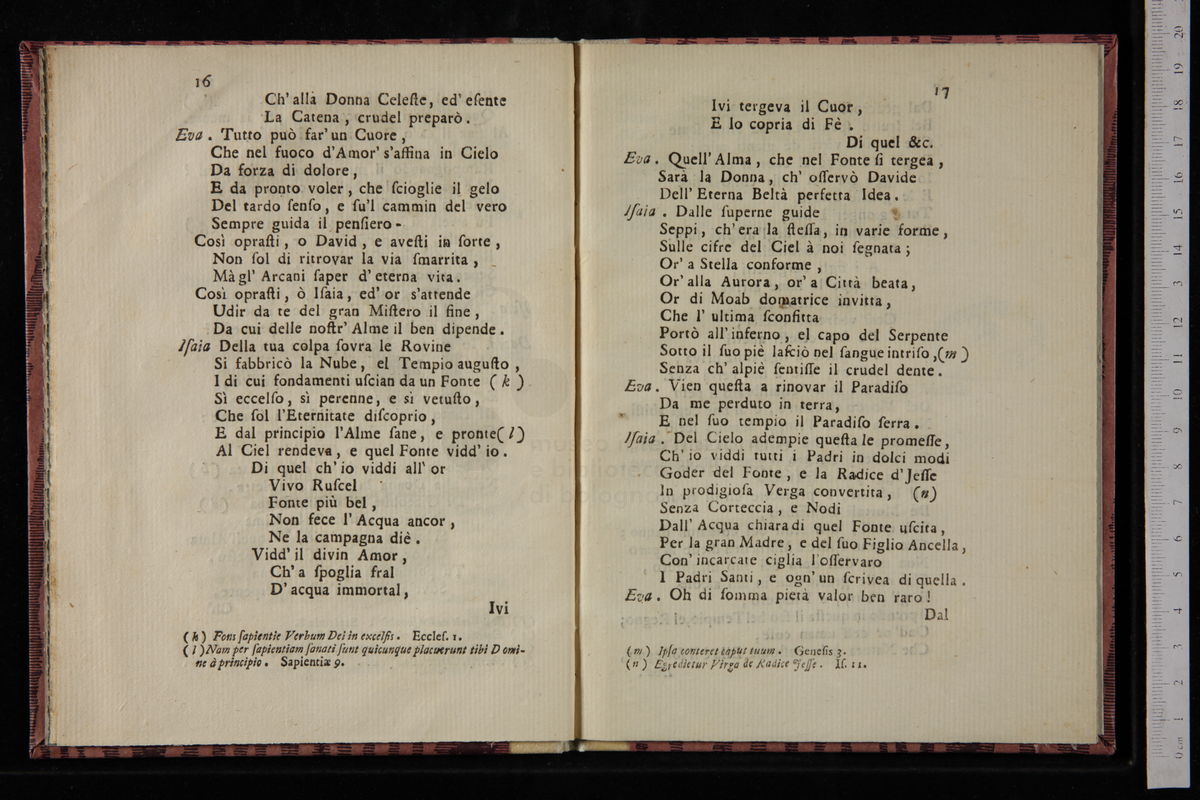 16
Ch' alla Donna Celeſte, ed' eſente
La Catena , crudel preparò .
Eva . Tutto può far' un Cuore ,
Che nel fuoco d'Amor' s'affina in Cielo
Da forza di dolore ,
E da pronto voler , che ſcioglie il gelo
Del tardo ſenſo , e ſu'l cammin del vero
Sempre guida il penſiero -
Così opraſti , o David , e aveſti in ſorte ,
Non ſol di ritrovar la via ſmarrita ,
Mà gl' Arcani ſaper d' eterna vita .
Così opraſti , ò Iſaia , ed' or s'attende
Udir da te del gran Miſtero il fine ,
Da cui delle noſtr' Alme il ben dipende .
Iſaia Della tua colpa ſovra le Rovine
Si fabbricò la Nube , el Tempio auguſto ,
I di cui fondamenti uſcian da un Fonte ( k )
Sì eccelſo , sì perenne , e sì vetuſto ,
Che ſol l'Eternitate diſcoprio ,
E dal principio l'Alme ſane , e pronte( l )
Al Ciel rendeva , e quel Fonte vidd' io .
Di quel ch' io viddi all' or
Vivo Ruſcel
Fonte più bel ,
Non fece l' Acqua ancor ,
Ne la campagna diè .
Vidd' il divin Amor ,
Ch' a ſpoglia fral
D' acqua immortal ,
Ivi
( k ) Fons ſapientie Verbum Dei in excelſis . Eccleſ. 1.
( l ) Nam per ſapientiam ſanati ſunt quicunque placuerunt tibi Domi-
ne à principio . Sapientiæ 9.
17
Ivi tergeva il Cuor ,
E lo copria di Fè .
Di quel &c.
Eva . Quell' Alma , che nel Fonte ſi tergea ,
Sarà la Donna , ch' oſſervò Davide
Dell' Eterna Beltà perfetta Idea .
Iſaia . Dalle ſuperne guide
Seppi , ch' era la ſteſſa , in varie forme ,
Sulle cifre del Ciel à noi ſegnata ;
Or' a Stella conforme ,
Or' alla Aurora , or' a Città beata ,
Or di Moab domatrice invitta ,
Che l' ultima ſconfitta
Portò all' inferno , el capo del Serpente
Sotto il ſuo piè laſciò nel ſangue intriſo ,( m )
Senza ch' alpiè ſentiſſe il crudel dente .
Eva . Vien queſta a rinovar il Paradiſo
Da me perduto in terra ,
E nel ſuo tempio il Paradiſo ſerra .
Iſaia . Del Cielo adempie queſta le promeſſe ,
Ch' io viddi tutti i Padri in dolci modi
Goder del Fonte , e la Radice d'Jeſſe
In prodigioſa Verga convertita , ( n )
Senza Corteccia , e Nodi
Dall' Acqua chiara di quel Fonte uſcita ,
Per la gran Madre , e del ſuo Figlio Ancella ,
Con' incarcate ciglia l'oſſervaro
I Padri Santi , e ogn' un ſcrivea di quella .
Eva . Oh di ſomma pietà valor ben raro !
Dal
( m ) Ipſa conteret caput tuum . Geneſis 3.
( n ) Egredietur Virga de Radice Jeſſe . Iſ. 11.
0 cm 1 2 3 4 5 6 7 8 9 10 11 12 13 14 15 16 17 18 19 20